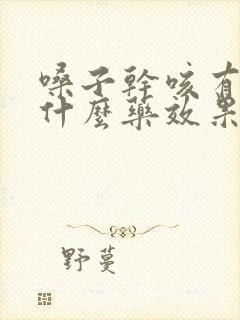 嗓子幹咳有
什麼藥效果
野蔓